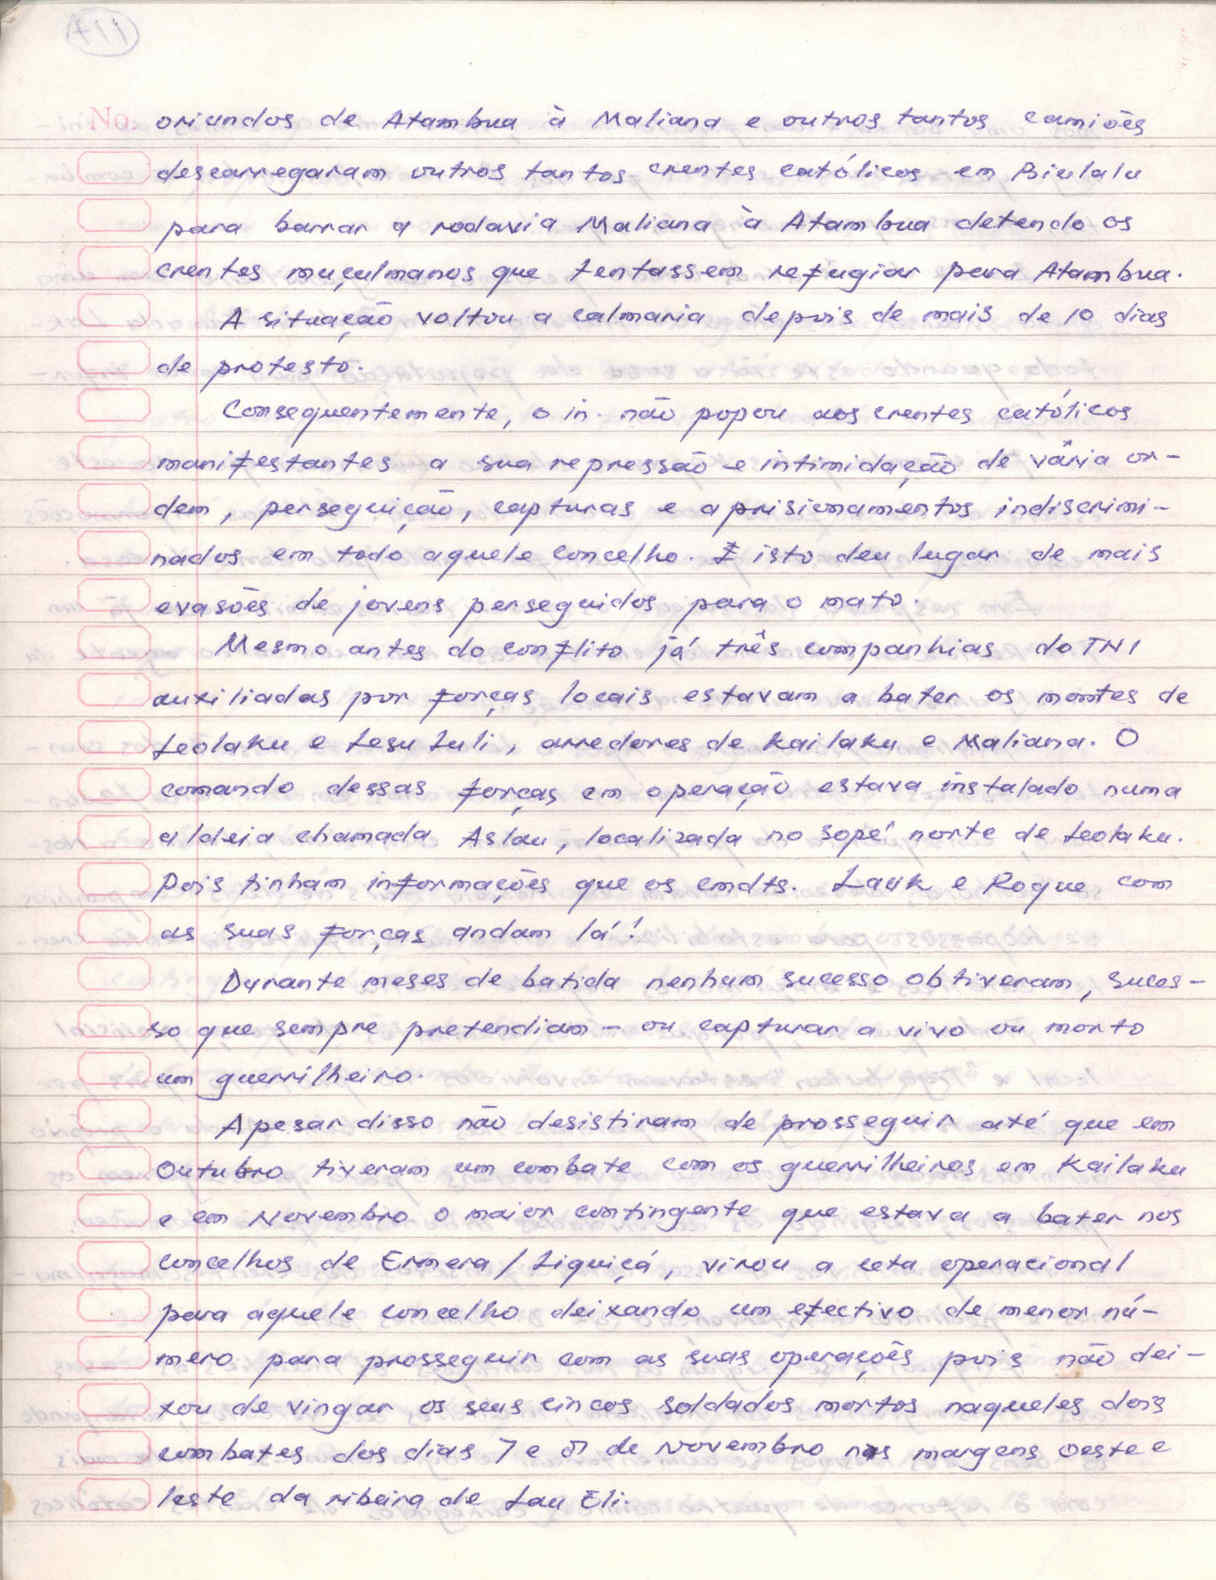 117
No.
oriundos de Atambua à Maliana e outros tantos camiões
descarregaram outros tantos crentes católicos em Biulalu
para barrar a rodavia Maliana à Atambua detendo os
crentes muçulmanos que tentassem refugiar para Atambua.
A situação voltou a calmaria depois de mais de 10 dias
de protesto.
Consequentemente, o in. não popou aos crentes católicos
manifestantes a sua repressão e intimidação de vária or-
dem, perseguição, capturas e aprisionamentos indiscrimi-
nados em todo aquele concelho. E isto deu lugar de mais
evasões de jovens perseguidos para o mato.
Mesmo antes do conflito já três companhias do TNI
auxiliadas por forças locais estavam a bater os montes de
Leolaku e Lesu Luli, arredores de Kailaku e Maliana. O
comando dessas forças em operação estava instalado numa
aldeia chamada Aslau, localizada no sopé norte de Leolaku.
Pois tinham informações que os cmdts. Lauk e Roque com
as suas forças andam lá!
Durante meses de batida nenhum sucesso obtiveram, suces-
so que sempre pretendiam - ou capturar a vivo ou morto
um guerrilheiro.
Apesar disso não desistiram de prosseguir até que em
Outubro tiveram um combate com os guerrilheiros em Kailaku
e em Novembro o maior contingente que estava a bater nos
concelhos de Ermera/Liquiçá, virou a ceta operacional
para aquele concelho deixando um efectivo de menor nú-
mero para prosseguir com as suas operações pois não dei-
xou de vingar, os seus cincos soldados mortos naqueles dois
combates dos dias 7 e 8 de Novembro nas margens oeste e
leste da ribeira de Lau Eli.